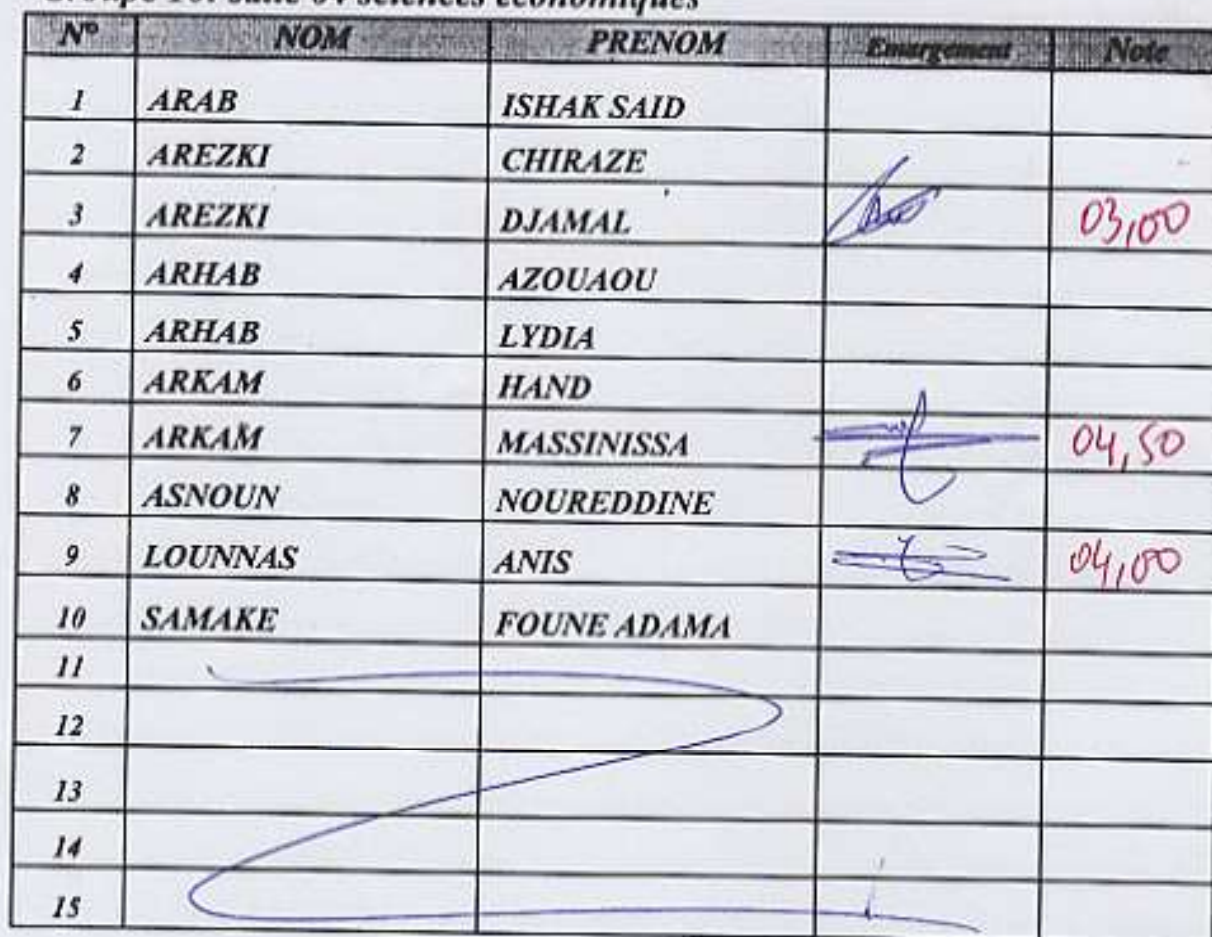 sciences économiques
N° NOM PRENOM Emargement Note
1 ARAB ISHAK SAID
2 AREZKI CHIRAZE
3 AREZKI DJAMAL 03,00
4 ARHAB AZOUAOU
5 ARHAB LYDIA
6 ARKAM HAND
7 ARKAM MASSINISSA 04,50
8 ASNOUN NOUREDDINE
9 LOUNNAS ANIS 04,00
10 SAMAKE FOUNE ADAMA
11
12
13
14
15